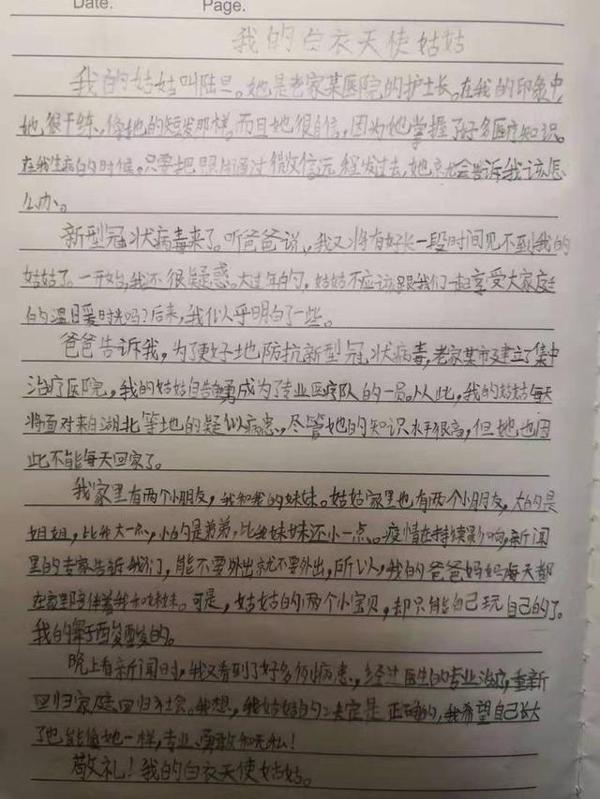 Date.
Page.
我的白衣天使姑姑
我的姑姑叫陆旦。她是老家某医院的护士长。在我的印象中
她很干练、像她的短发那样。而且她很自信,因为她掌握了好多医疗知识。
在我生病的时候。只要把照片通过微信远程发过去,她就会告诉我该怎
么办。
新型冠状病毒来了。听爸爸说,我又将有好长一段时间见不到我的
姑姑了。一开始,我还很疑惑。大过年的,姑姑不应该跟我们一起享受大家庭
的温暖时光吗?后来,我似乎明白了一些。
爸爸告诉我,为了更好地防抗新型冠状病毒,老家某市建立了集中
治疗医院,我的姑姑自告奋勇成为了专业医疗队的一员。从此,我的姑姑每天
将面对来自湖北等地的疑似病患、尽管她的知识水平很高,但她也因
此不能每天回家了。
我家里有两个小朋友,我和我的妹妹。姑姑家里也有两个小朋友,大的是
姐姐,比我大一点,小的是弟弟,比我妹妹还小一点。疫情在持续影响,新闻
里的专家告诉我们,能不要外出就不要外出,所以,我的爸爸妈妈每天都
在家里陪伴着我和妹妹。可是,姑姑的两个小宝贝,却只能自己玩自己的了。
我的鼻子酸酸的。
晚上看新闻时,我又看到了好多例病患、经过医生的专业治疗,重新
回归家庭回归社会。我想,我姑姑的决定是正确的,我希望自己长大
了也能像她一样,专业、勇敢和无私!
敬礼!我的白衣天使姑姑。